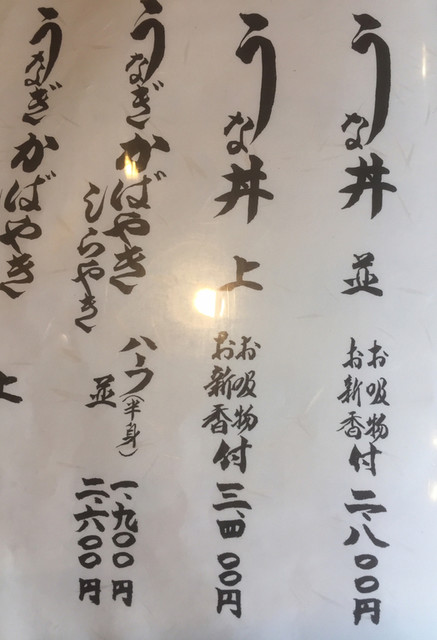 うな丼 並 お吸物 お新香付 二、八〇〇円
うな丼 上 お吸物 お新香付 三、四〇〇円
うなぎかばやき ハーフ(半身) 一、九〇〇円
しらやき 並 二、六〇〇円
うなぎかばやき 上